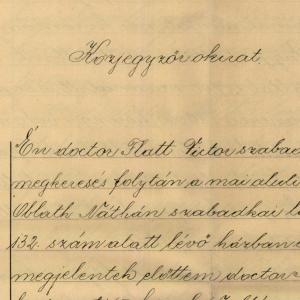 Közjegyzői okirat.
Én doctor Flatt Victor szabad
megkeresés folytán a mai alul
Oblath Náthán szabadkai l
132. szám alatt lévő házban
megjelentek előttem doctor